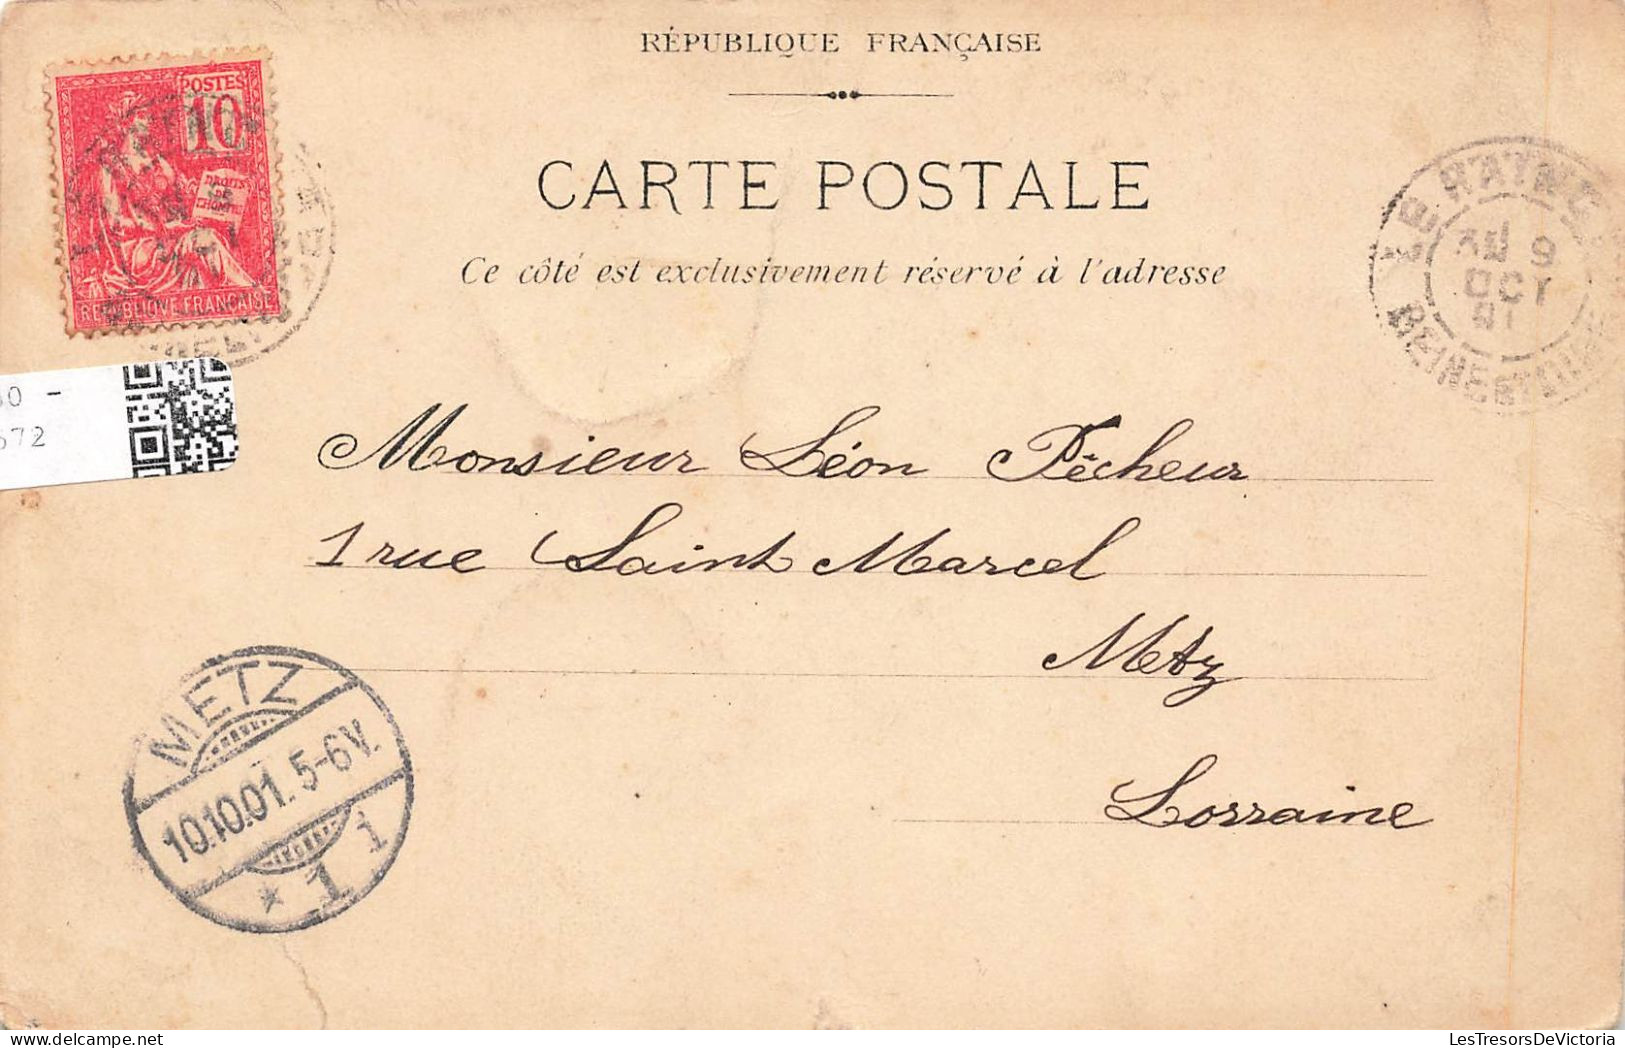 RÉPUBLIQUE FRANÇAISE
POSTES
10
DROITS
DE
L'HOMME
REPUBLIQUE FRANÇAISE
CARTE POSTALE
Ce côté est exclusivement réservé à l'adresse
LE RAINCY
9
OCT
01
SEINE ET OISE
672
Monsieur Léon Pêcheur
1 rue Saint Marcel
Metz
Lorraine
METZ
10.10.01. 5-6V.
* 1 i
LesTresorsDeVictoria